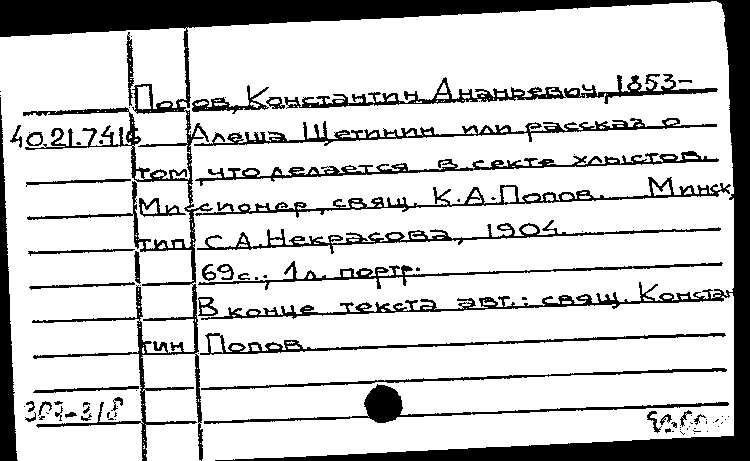 Попов, Константин Ананьевич, 1853-
40.21.7.416 Алеша Щетинин или рассказ о
том, что делается в секте хлыстов.
Миссионер, свящ. К.А.Попов. Минск,
тип. С.А.Некрасова, 1904.
69с.; 1л. портр.
В конце текста авт.: свящ. Констан
тин Попов.
307-3/8